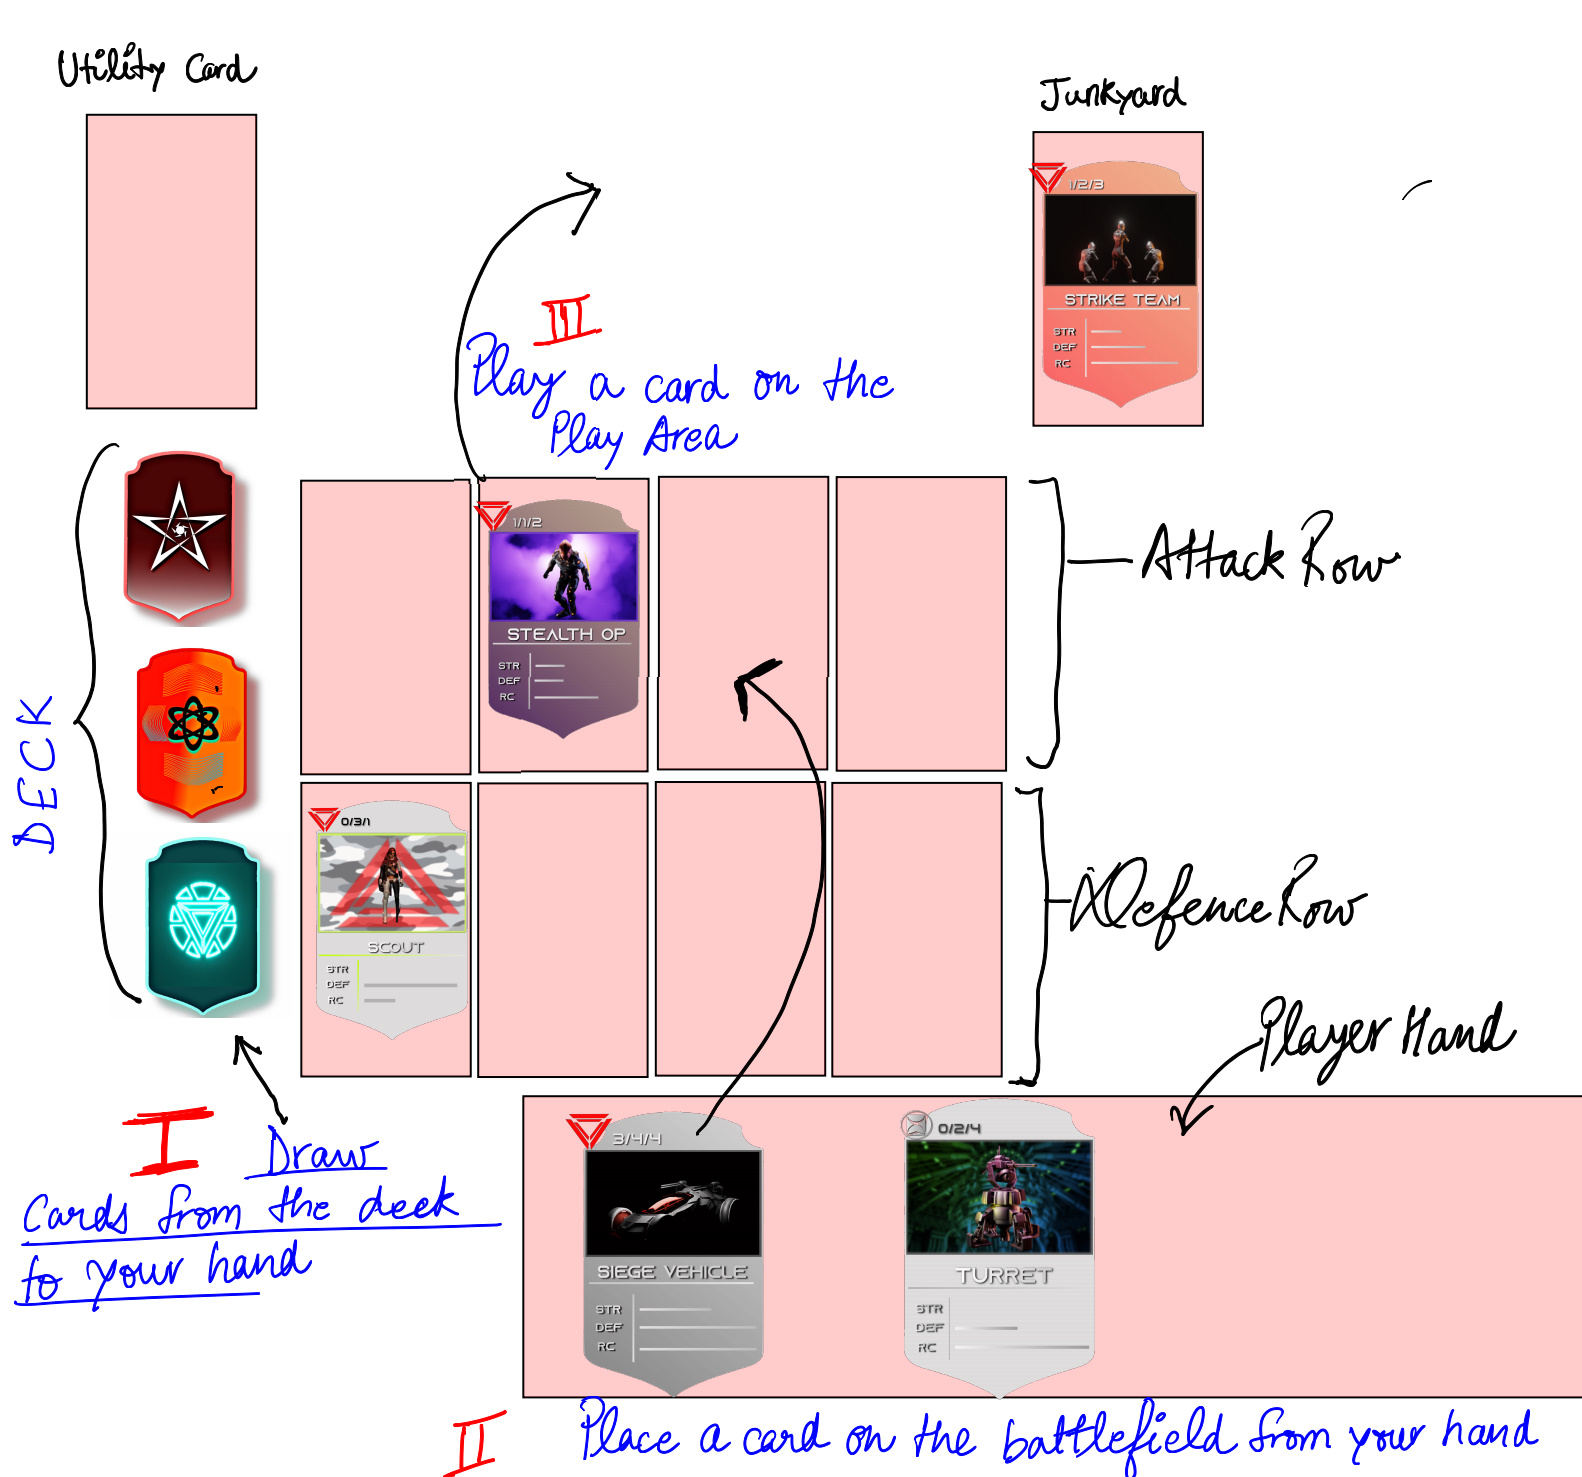 Utility Card
Junkyard
1/2/3
STRIKE TEAM
STR
DEF
RC
III
Play a card on the
Play Area
DECK
1/1/2
STEALTH OP
STR
DEF
RC
Attack Row
0/3/1
SCOUT
STR
DEF
RC
Defence Row
Player Hand
I Draw
Cards from the deck
to your hand
3/4/4
SIEGE VEHICLE
STR
DEF
RC
0/2/4
TURRET
STR
DEF
RC
II Place a card on the battlefield from your hand